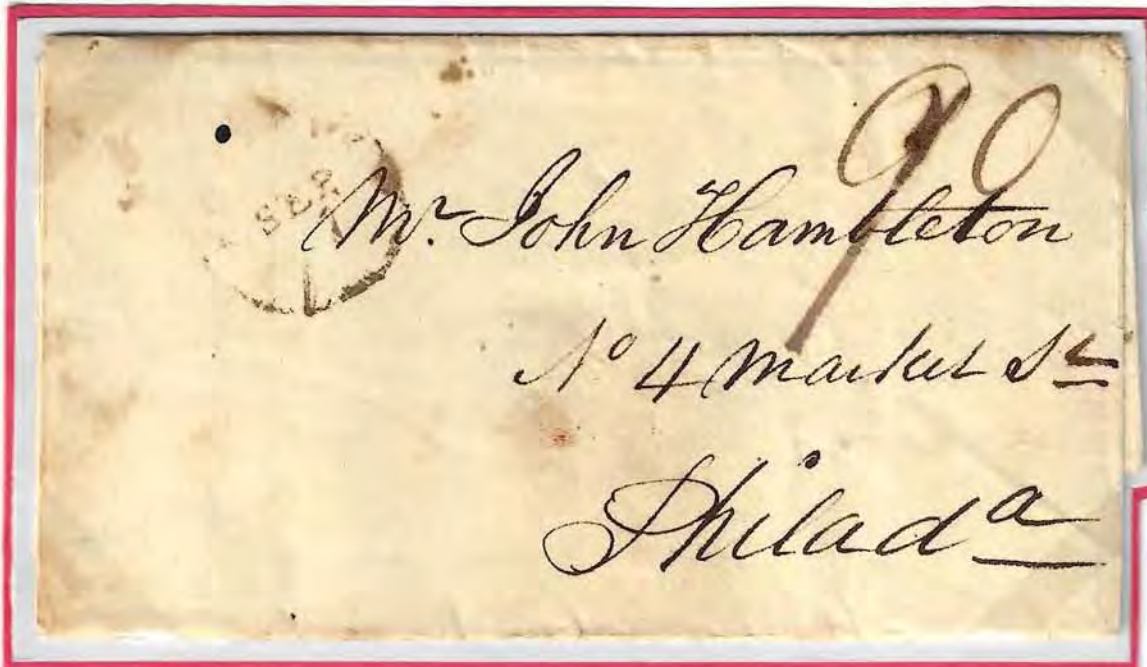 90
SEP
Mr. John Hambleton
No 4 Market St
Philada